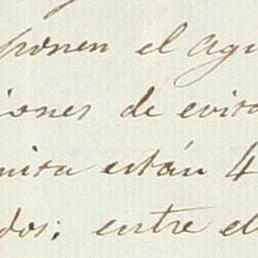 ponen el agu
iones de evita
misa están 4
dos; entre el